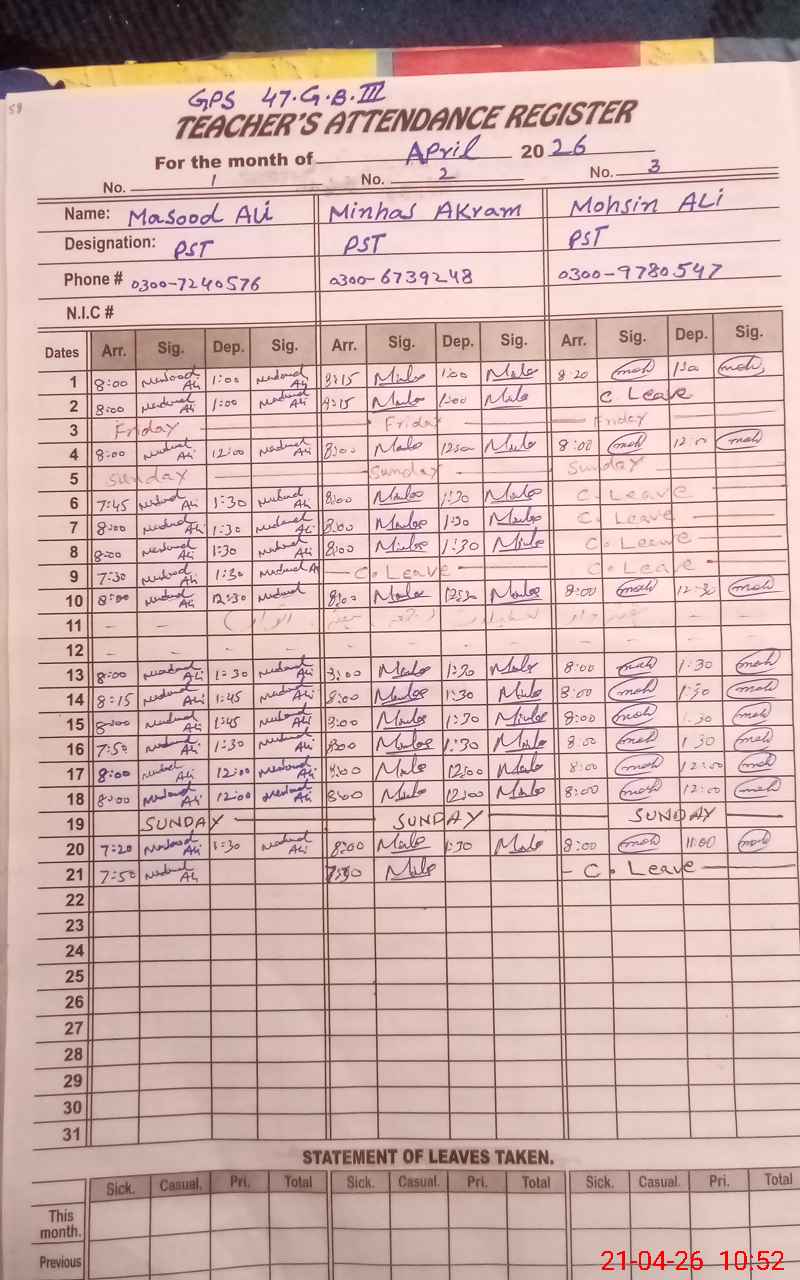 58
GPS 47.G.B.III
TEACHER'S ATTENDANCE REGISTER
For the month of April 2026
No. 1 No. 2 No. 3
Name: Masood Ali Minhas Akram Mohsin Ali
Designation: PST PST PST
Phone # 0300-7240576 0300-6739248 0300-9780547
N.I.C #
Dates Arr. Sig. Dep. Sig. Arr. Sig. Dep. Sig. Arr. Sig. Dep. Sig.
1 8:00 Masood Ali 1:00 Masood Ali 8:15 1:00 8:20 moh moh
2 8:00 Masood Ali 1:00 Masood Ali 8:15 1:00 C. Leave
3 Friday Friday Friday
4 8:00 Masood Ali 12:00 Masood Ali 8:00 8:00 moh moh
5 Sunday Sunday Sunday
6 7:45 Masood Ali 1:30 Masood Ali 8:00 1:30 C. Leave
7 8:00 Masood Ali 1:30 Masood Ali 8:00 1:30 C. Leave
8 8:00 Masood Ali 1:30 Masood Ali 8:00 1:30 C. Leave
9 7:30 Masood Ali 1:30 Masood A C. Leave C. Leave
10 8:00 Masood Ali 12:30 Masood 8:00 12:30 8:00 moh 12:30 moh
11
12
13 8:00 Masood Ali 1:30 Masood Ali 8:00 1:30 8:00 moh 1:30 moh
14 8:15 Masood Ali 1:45 Masood Ali 8:00 1:30 8:00 moh 1:30 moh
15 8:00 Masood Ali 1:45 Masood Ali 8:00 1:30 8:00 moh 1:30 moh
16 7:50 Masood Ali 1:30 Masood Ali 8:00 1:30 8:00 moh 1:30 moh
17 8:00 Masood Ali 12:00 Masood Ali 8:00 12:00 8:00 moh 12:00 moh
18 8:00 Masood Ali 12:00 Masood Ali 8:00 12:00 8:00 moh 12:00 moh
19 SUNDAY SUNDAY SUNDAY
20 7:20 Masood Ali 1:30 Masood Ali 8:00 1:30 8:00 moh 11:00 moh
21 7:50 Masood Ali C. Leave
22
23
24
25
26
27
28
29
30
31
STATEMENT OF LEAVES TAKEN.
Sick. Casual. Pri. Total Sick. Casual. Pri. Total Sick. Casual. Pri. Total
This month.
Previous
21-04-26 10:52